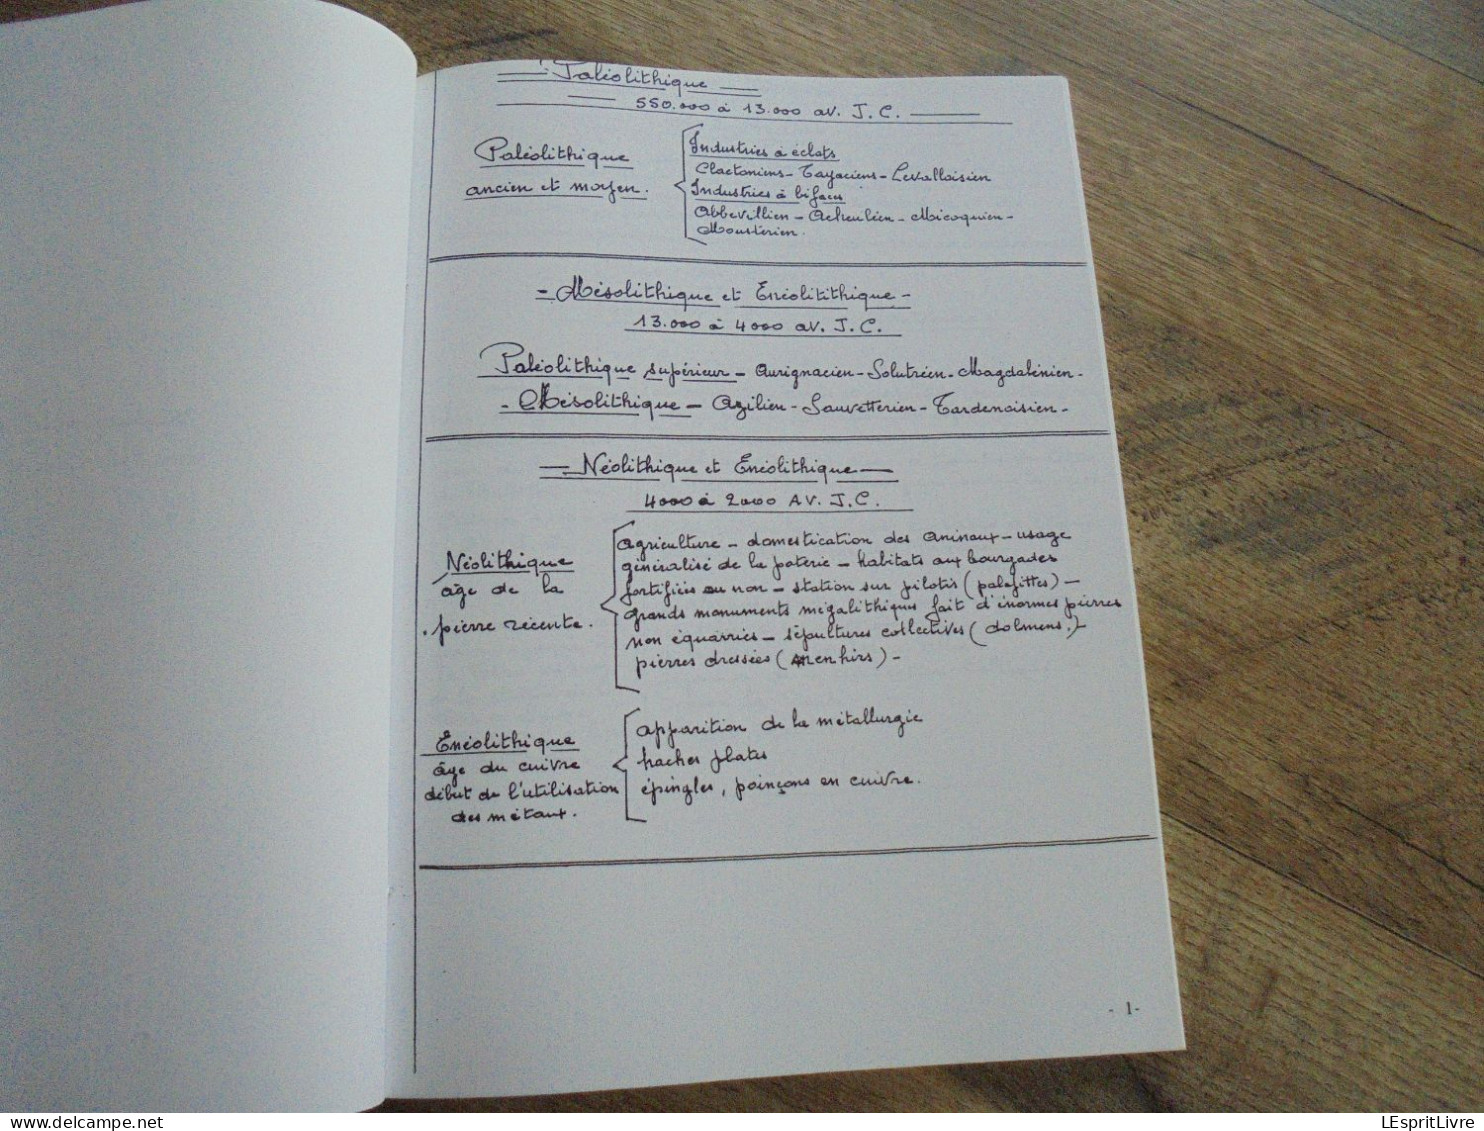 Paléolithique
550.000 à 13.000 av. J.C.
Paléolithique
ancien et moyen.
Industries à éclats
Clactoniens - Tayaciens - Levalloisien
Industries à bifaces
Abbevillien - Acheuléen - Micoquien -
Moustérien.
- Mésolithique et Enéolitithique -
13.000 à 4000 av. J.C.
Paléolithique supérieur - Aurignacien - Solutréen - Magdalénien -
- Mésolithique - Azilien - Sauvetterien - Tardenoisien -
Néolithique et Enéolithique
4000 à 2000 AV. J.C.
Néolithique
âge de la
pierre récente.
Agriculture - domestication des animaux - usage
généralisé de la poterie - habitats aux bourgades
fortifiées ou non - station sur pilotis (palafittes) -
grands monuments mégalithiques fait d'énormes pierres
non équarries - sépultures collectives (dolmens.) -
pierres dressées (menhirs) -
Enéolithique
âge du cuivre
début de l'utilisation
des métaux.
apparition de la métallurgie
haches plates
épingles, poinçons en cuivre.
- 1-
delcampe.net
LEspritLivre